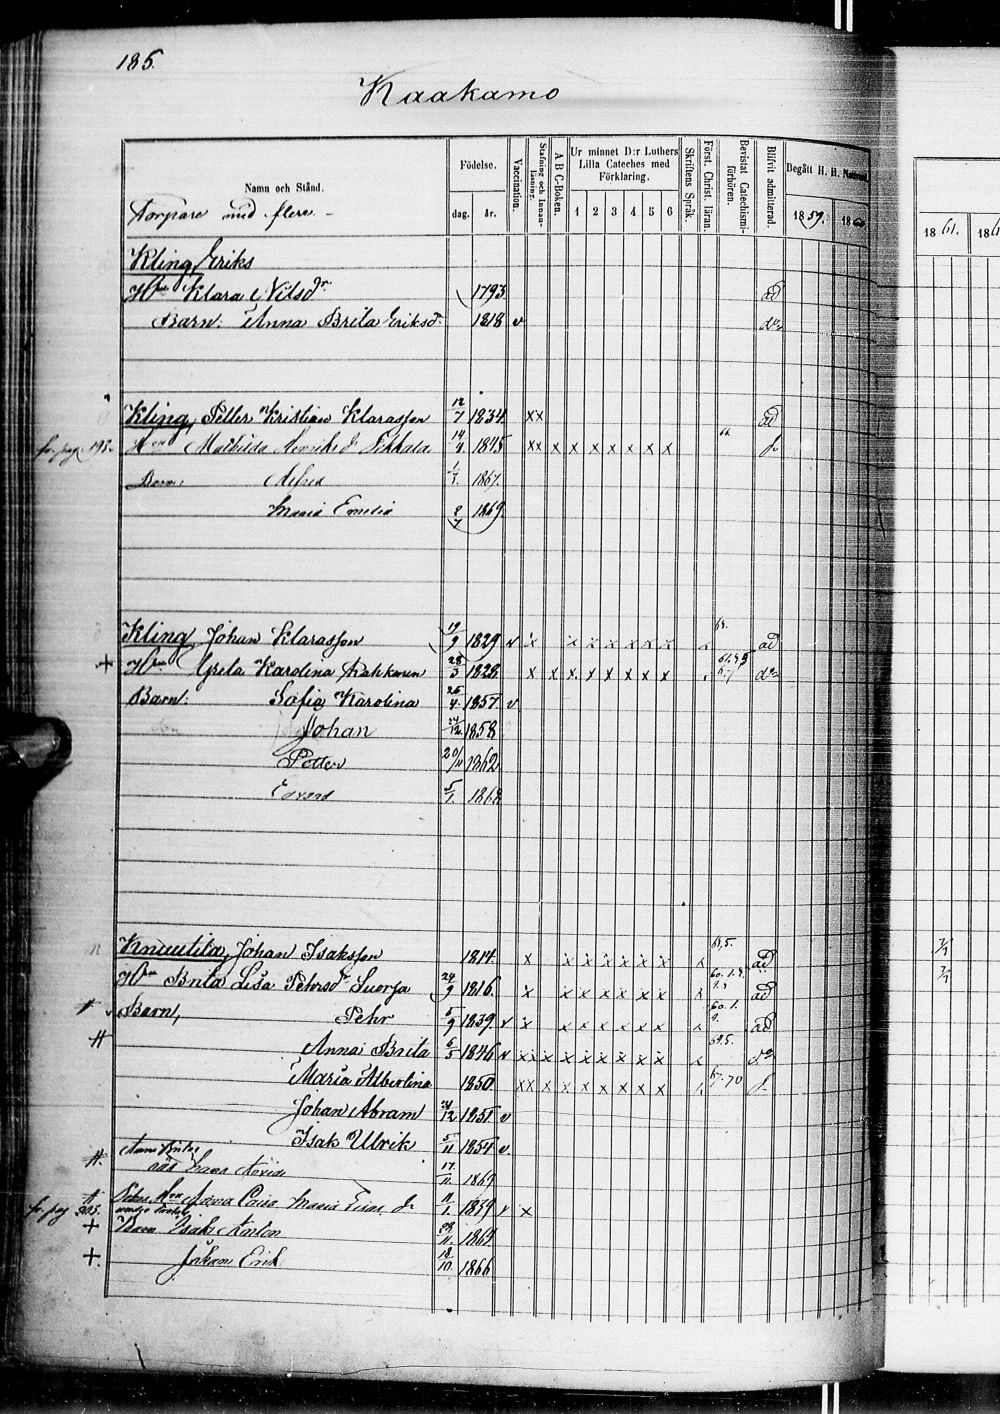 186.
Kaakamo
Namn och Stånd.
Torpare med flera
Födelse.
dag. år.
Vaccination.
Stafning och Innan-läsning.
A B C-Boken.
Ur minnet D:r Luthers Lilla Cateches med Förklaring.
1 2 3 4 5 6
Skriftens Språk.
Först. Christ. läran.
Bevistat Catechismi-förhören.
Blifvit admitterad.
Begått H. H. Nattvard.
1859. 1860
1861. 186
Kling, Eriks
H:ru Klara Nilsdr 1793 ad
Barn: Anna Brita Eriksdr 1818 v do
Kling, Petter Kristian Klarasson 12/7 1834 xx ad
fr. pag 193. Hru Mathilda Henriksdr 14/4 1845 xx x x x x x x x
Barn: Alfred 1867.
Maria Emilia 8/7 1869.
Kling, Johan Klarasson 19/9 1829 v x x x x x x x x ad
+ Hru Greta Karolina 28/3 1828 x x x x x x x x do
Barn: Sofia Karolina 26/4 1857 v
Johan 24/12 1858
Petter 20/11 1862
Edvard 5/1. 1868
Knuutila, Johan Isaksson 1814 x x x x x x x x ad
Hru Brita Lisa Pehrsdr Suorsa 24/9 1816 x x x x x x x x ad
Barn, Pehr 5/9 1839 v x x x x x x x x ad
Anna Brita 6/5 1846 v xx x x x x x x x x do
Maria Albertina 1850. xx x x x x x x x
Johan Abram 21/12 1851 v
Isak Ulrik 5/11 1854 v.
17/11. 1869
fr. pag 303. Hru Anna Caisa Maria 11/1. 1839 v x
+ Barn Isak Anton 28/11. 1864
+ Johan Erik 18/10. 1866